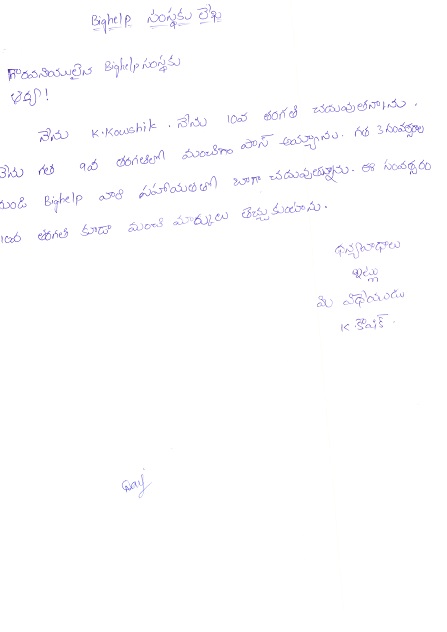 Bighelp సంస్థకు లేఖ
గౌరవనీయులైన Bighelp సంస్థకు
ఆర్యా!
నేను K.Koushik. నేను 10వ తరగతి చదువుతున్నాను.
నేను గత 9వ తరగతిలో మంచిగా పాస్ అయ్యాను. గత 3 సంవత్సరాల
నుండి Bighelp వారి సహాయతతో బాగా చదువుతున్నాను. ఈ సంవత్సరం
10వ తరగతి కూడా మంచి మార్కులు తెచ్చుకుంటాను.
ధన్యవాదాలు
ఇట్లు
మీ విధేయుడు
K.కౌషిక్.